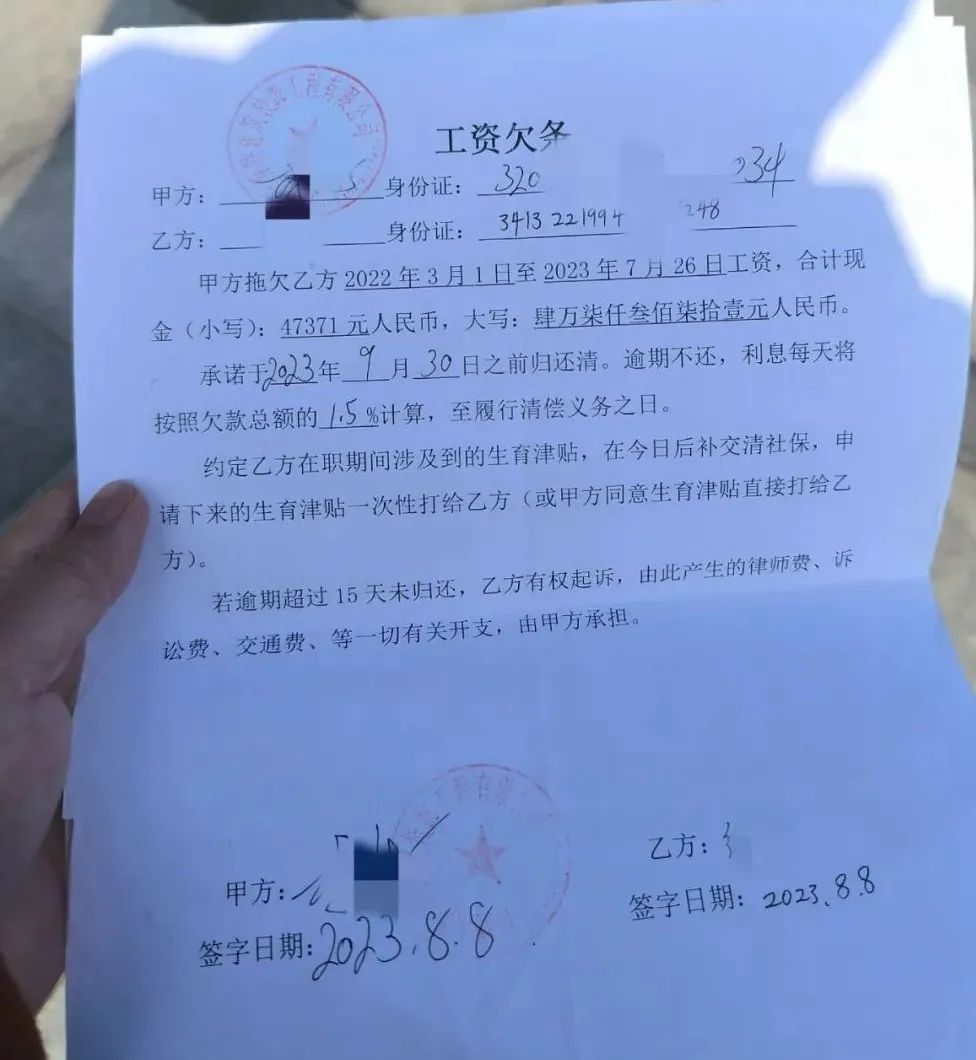 工程有限公司
工资欠条
甲方： 身份证：320 34
乙方： 身份证：3413 221994 248
甲方拖欠乙方 2022 年 3 月 1 日至 2023 年 7 月 26 日工资，合计现
金（小写）：47371 元人民币，大写：肆万柒仟叁佰柒拾壹元人民币。
承诺于2023年 9 月 30 日之前归还清。逾期不还，利息每天将
按照欠款总额的 1.5 %计算，至履行清偿义务之日。
约定乙方在职期间涉及到的生育津贴，在今日后补交清社保，申
请下来的生育津贴一次性打给乙方（或甲方同意生育津贴直接打给乙
方）。
若逾期超过 15 天未归还，乙方有权起诉，由此产生的律师费、诉
讼费、交通费、等一切有关开支，由甲方承担。
工程有限
甲方： 乙方：
签字日期：2023.8.8 签字日期：2023.8.8